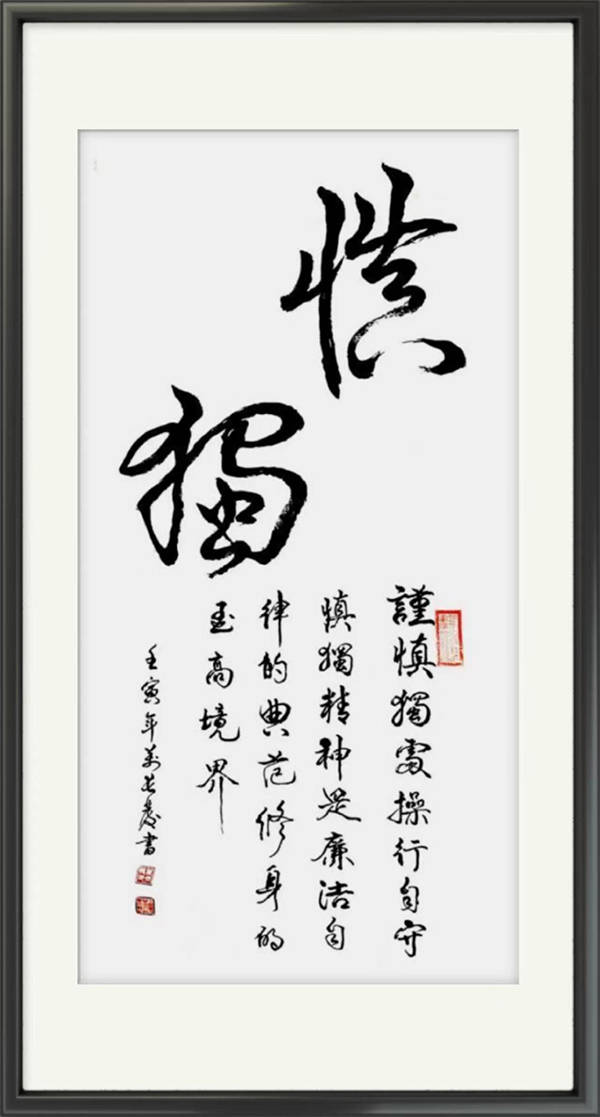 慎
獨
謹慎獨處操行自守
慎獨精神是廉洁自
律的典范修身的
至高境界
壬寅年萬长慶書